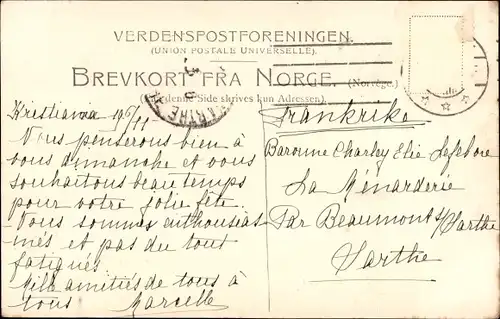 VERDENSPOSTFORENINGEN.
(UNION POSTALE UNIVERSELLE).
BREVKORT FRA NORGE. (Norvège.)
(Denne Side skrives kun Adressen).
SARTHE
Kristiania 19 6/11
Vous penserons bien à
vous dimanche et vous
souhaitons beau temps
pour votre jolie fête.
Nous sommes enthousias
més et pas du tout
fatigués
Mille amitiés de tous à
tous Marcelle
Frankrike
Baronne Charley Elie Lefebvre
La Ménarderie
Par Beaumont s/Sarthe
Sarthe